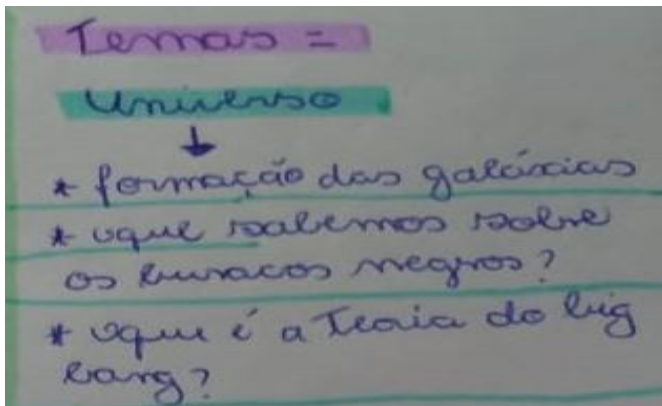 Temas =
Universo.
↓
* formação das galáxias
* oque sabemos sobre
os buracos negros?
* oque é a Teoria do big
bang?